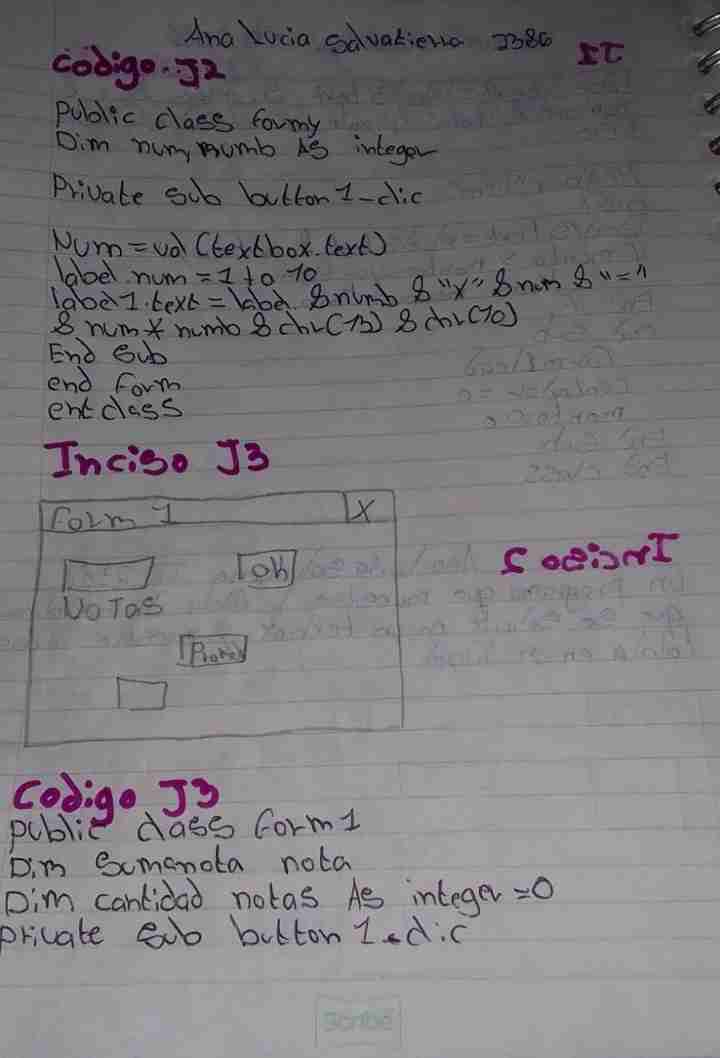 Ana Lucia Salvatierra J386 IT
Codigo J2
Public class formy
Dim num, numb As integer
Private Sub button1-clic
Num = val (textbox.text)
label num = 1 to 10
label1.text = label & numb & "x" & num & "="
& num * numb & chr(13) & chr(10)
End Sub
end form
ent class
Inciso J3
Form 1 X
OK
Notas
Codigo J3
public class form1
Dim Sumanota nota
Dim cantidad notas As integer = 0
private sub button1-clic
Scribe